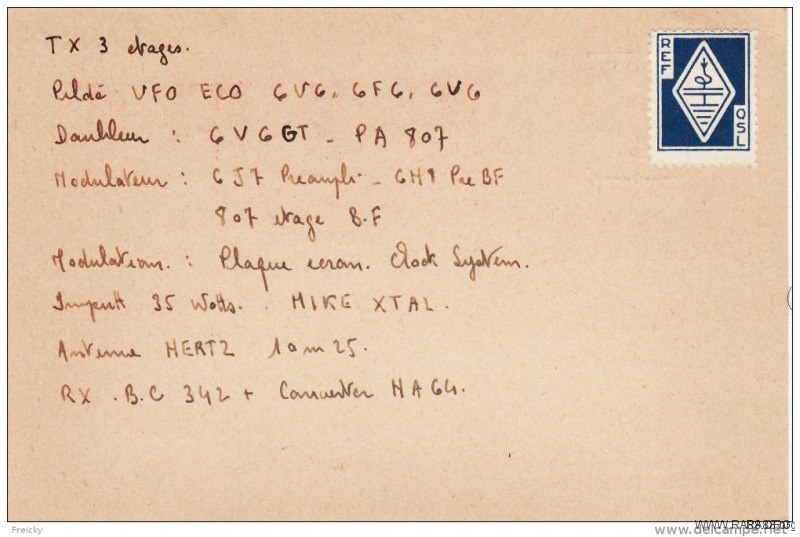 TX 3 etages.
Piloté VFO ECO 6V6, 6F6, 6V6
Doubleur : 6V6GT - PA 807
Modulateur : 6J7 Preampli - 6H8 Pre BF
807 etage B.F
Modulation : Plaque ecran. Clock System.
Imputt 35 Watts. MIKE XTAL.
Antenne HERTZ 10m25.
RX . B.C 342 + Converter HA64.
REF
QSL
Freicky